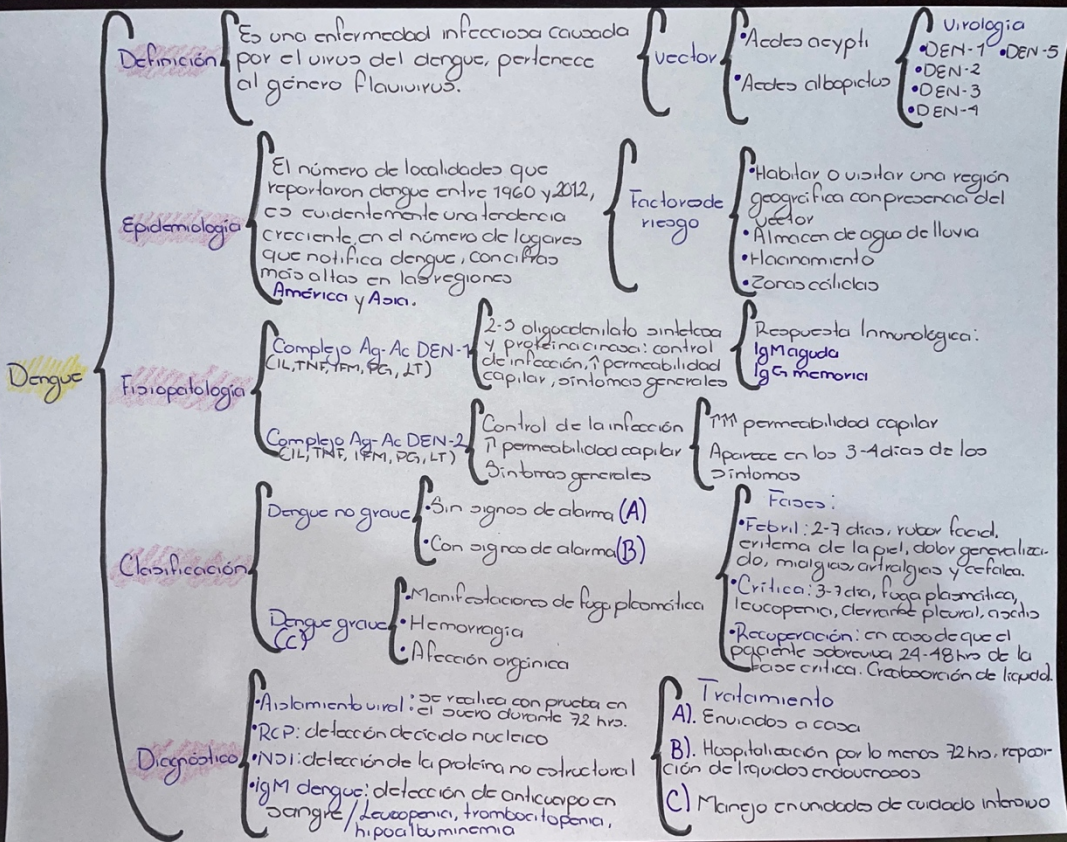 Dengue
Definición
Es una enfermedad infecciosa causada
por el virus del dengue, pertenece
al género flavivirus.
vector
•Aedes aeypti
•Aedes albopictus
Virología
•DEN-1 •DEN-5
•DEN-2
•DEN-3
•DEN-4
Epidemiología
El número de localidades que
reportaron dengue entre 1960 y 2012,
es evidentemente una tendencia
creciente, en el número de lugares
que notifica dengue, con cifras
más altas en las regiones
América y Asia.
Factores de
riesgo
•Habitar o visitar una región
geográfica con presencia del
vector
•Almacen de agua de lluvia
•Hacinamiento
•Zonas cálidas
Fisiopatología
Complejo Ag-Ac DEN-1
(IL, TNF, IFM, PG, LT)
2-5 oligoadenilato sintetasa
y proteina cinasa: control
de infección, ↑ permeabilidad
capilar, síntomas generales
Respuesta Inmunológica:
IgM aguda
IgG memoria
Complejo Ag-Ac DEN-2
(IL, TNF, IFM, PG, LT)
Control de la infección
↑ permeabilidad capilar
Síntomas generales
↑↑↑ permeabilidad capilar
Aparece en los 3-4 días de los
síntomas
Clasificación
Dengue no grave
•Sin signos de alarma (A)
•Con signos de alarma (B)
Dengue grave
(C)
•Manifestaciones de fuga plasmática
•Hemorragia
•Afección orgánica
Fases:
•Febril: 2-7 días, rubor facial,
eritema de la piel, dolor generaliza-
do, mialgias, artralgias y cefalea.
•Crítica: 3-7 día, fuga plasmática,
leucopenia, derrame pleural, ascitis
•Recuperación: en caso de que el
paciente sobreviva 24-48 hrs de la
fase crítica. Reabsorción de líquido.
Diagnóstico
•Aislamiento viral: se realica con prueba en
el suero durante 72 hrs.
•RCP: detección de ácido nucleico
•NS1: detección de la proteína no estructural
•IgM dengue: detección de anticuerpo en
sangre/Leucopenia, trombocitopenia,
hipoalbuminemia
Tratamiento
A). Enviados a casa
B). Hospitalización por lo menos 72 hrs, reposi-
ción de líquidos endovenosos
C) Manejo en unidades de cuidado intensivo